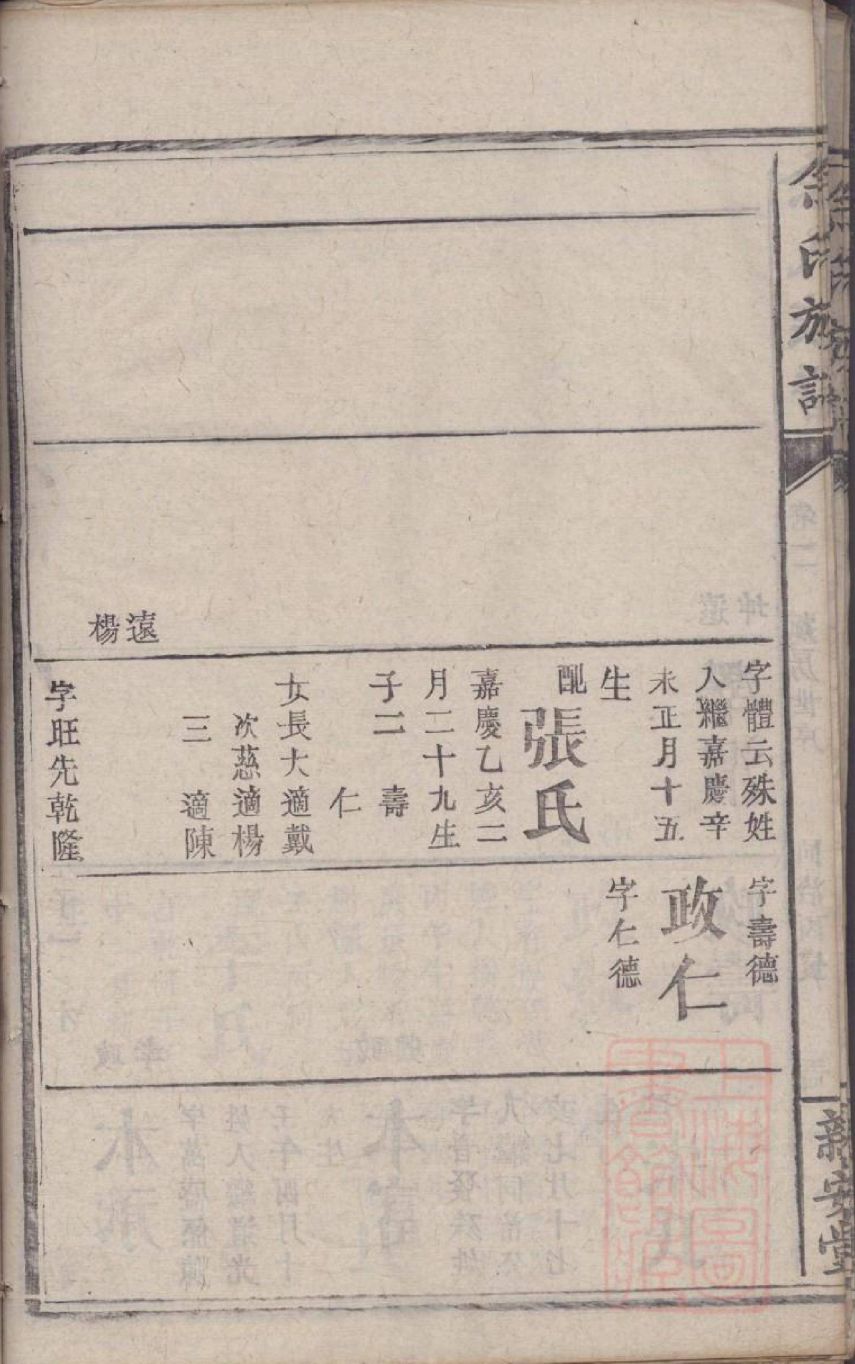 余氏族譜
新安堂
遠
楊
字體云殊姓
人繼嘉慶辛
未正月十五
生
配張氏
嘉慶乙亥二
月二十九生
子二 壽
仁
女長大適戴
次慈適楊
三 適陳
字旺先乾隆
字壽德
政仁
字仁德